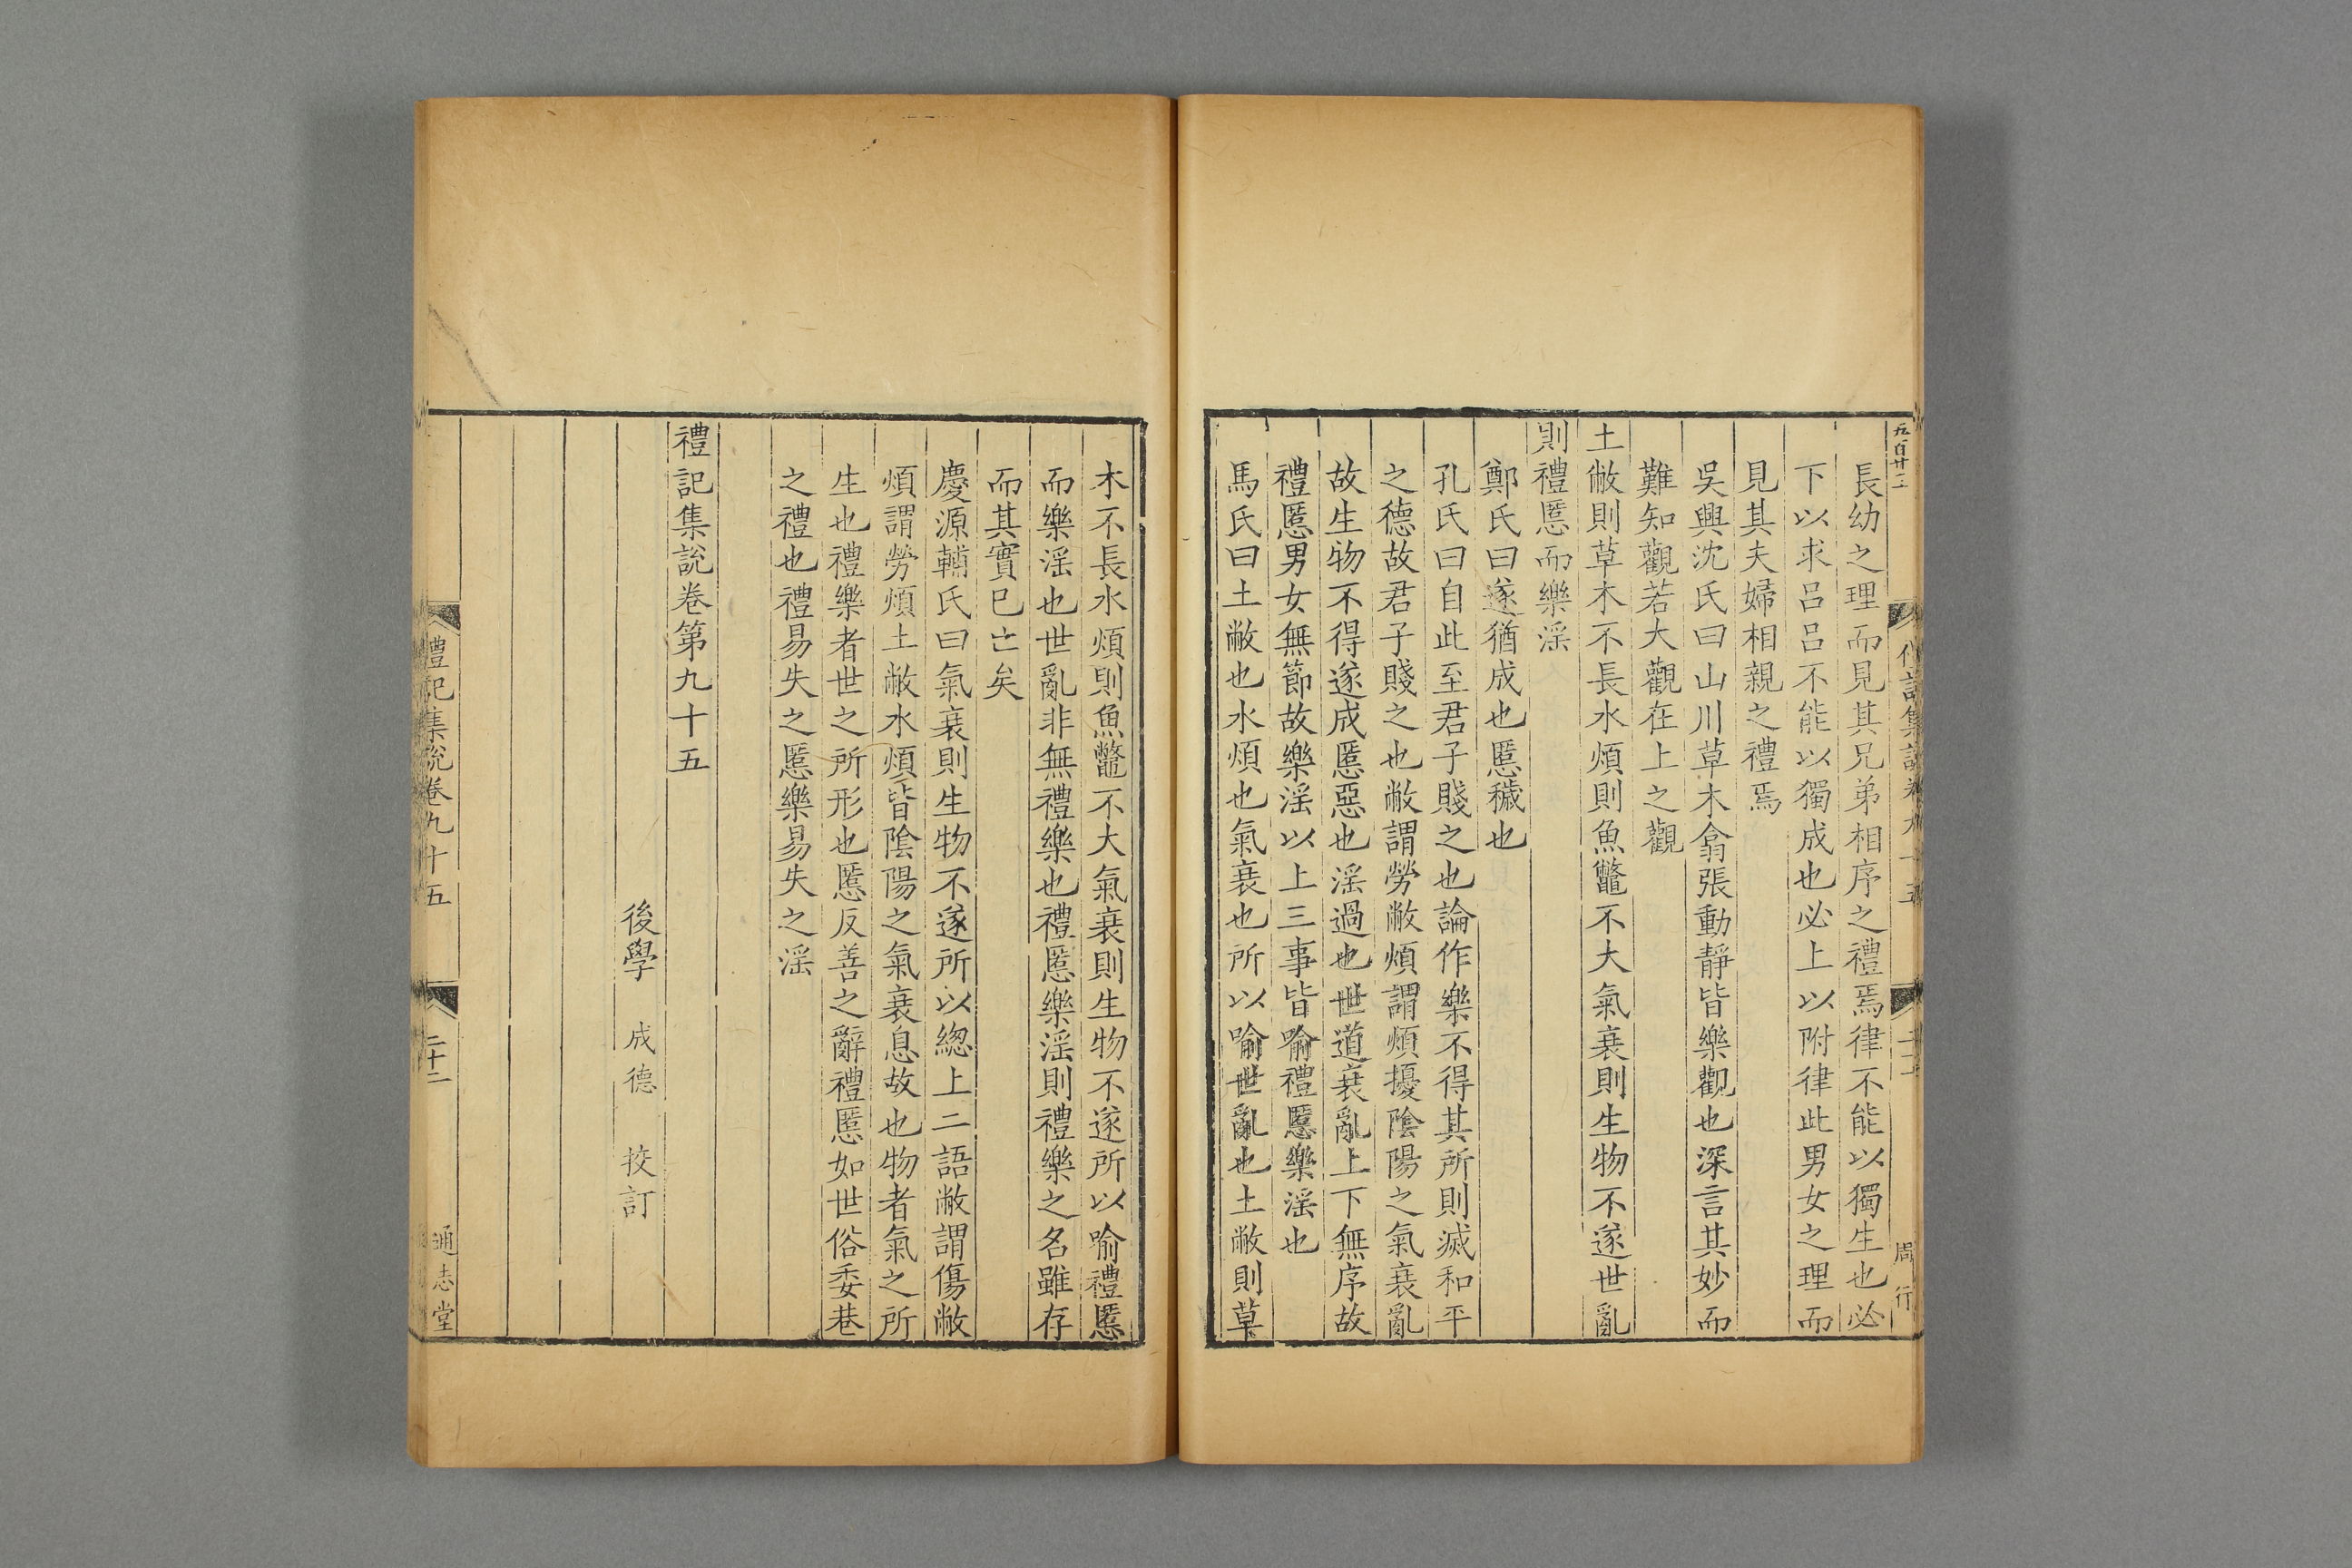 五百廿二
長幼之理而見其兄弟相序之禮焉律不能以獨生也必
下以求呂呂不能以獨成也必上以附律此男女之理而
見其夫婦相親之禮焉
吳興沈氏曰山川草木翕張動靜皆樂觀也深言其妙而
難知觀若大觀在上之觀
土敝則草木不長水煩則魚鼈不大氣衰則生物不遂世亂
則禮慝而樂淫
鄭氏曰遂猶成也慝穢也
孔氏曰自此至君子賤之也論作樂不得其所則滅和平
之德故君子賤之也敝謂勞敝煩謂煩擾陰陽之氣衰亂
故生物不得遂成慝惡也淫過也世道衰亂上下無序故
禮慝男女無節故樂淫以上三事皆喻禮慝樂淫也
馬氏曰土敝也水煩也氣衰也所以喻世亂也土敝則草
周行
木不長水煩則魚鼈不大氣衰則生物不遂所以喻禮慝
而樂淫也世亂非無禮樂也禮慝樂淫則禮樂之名雖存
而其實已亡矣
慶源輔氏曰氣衰則生物不遂所以總上二語敝謂傷敝
煩謂勞煩土敝水煩皆陰陽之氣衰息故也物者氣之所
生也禮樂者世之所形也慝反善之辭禮慝如世俗委巷
之禮也禮易失之慝樂易失之淫
禮記集說卷第九十五
後學 成德 挍訂
禮記集說卷九十五 二十二 通志堂